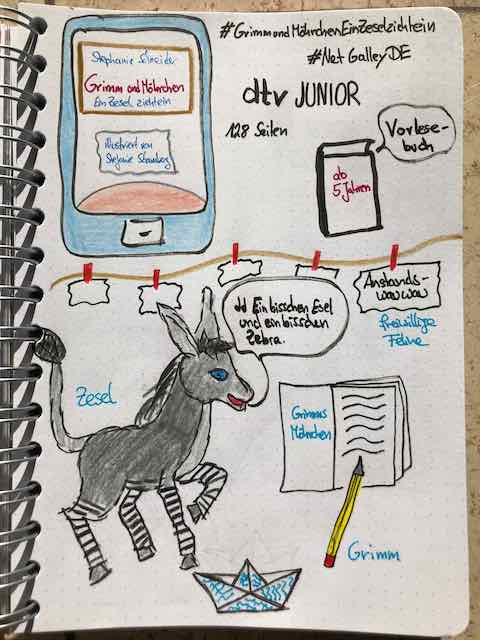 #GrimmundMöhrchenEinZeselziehtein
#NetGalleyDE
Stephanie Schneider
Grimm und Möhrchen
Ein Zesel zieht ein
Illustriert von
Stefanie Scharnberg
dtv JUNIOR
128 Seiten
Vorlese-
buch
ab
5 Jahren
Anstands-
wauwau
freiwillige
Zesel
"Ein bisschen Esel
und ein bisschen
Zebra.
Grimms
Möhrchen
Grimm